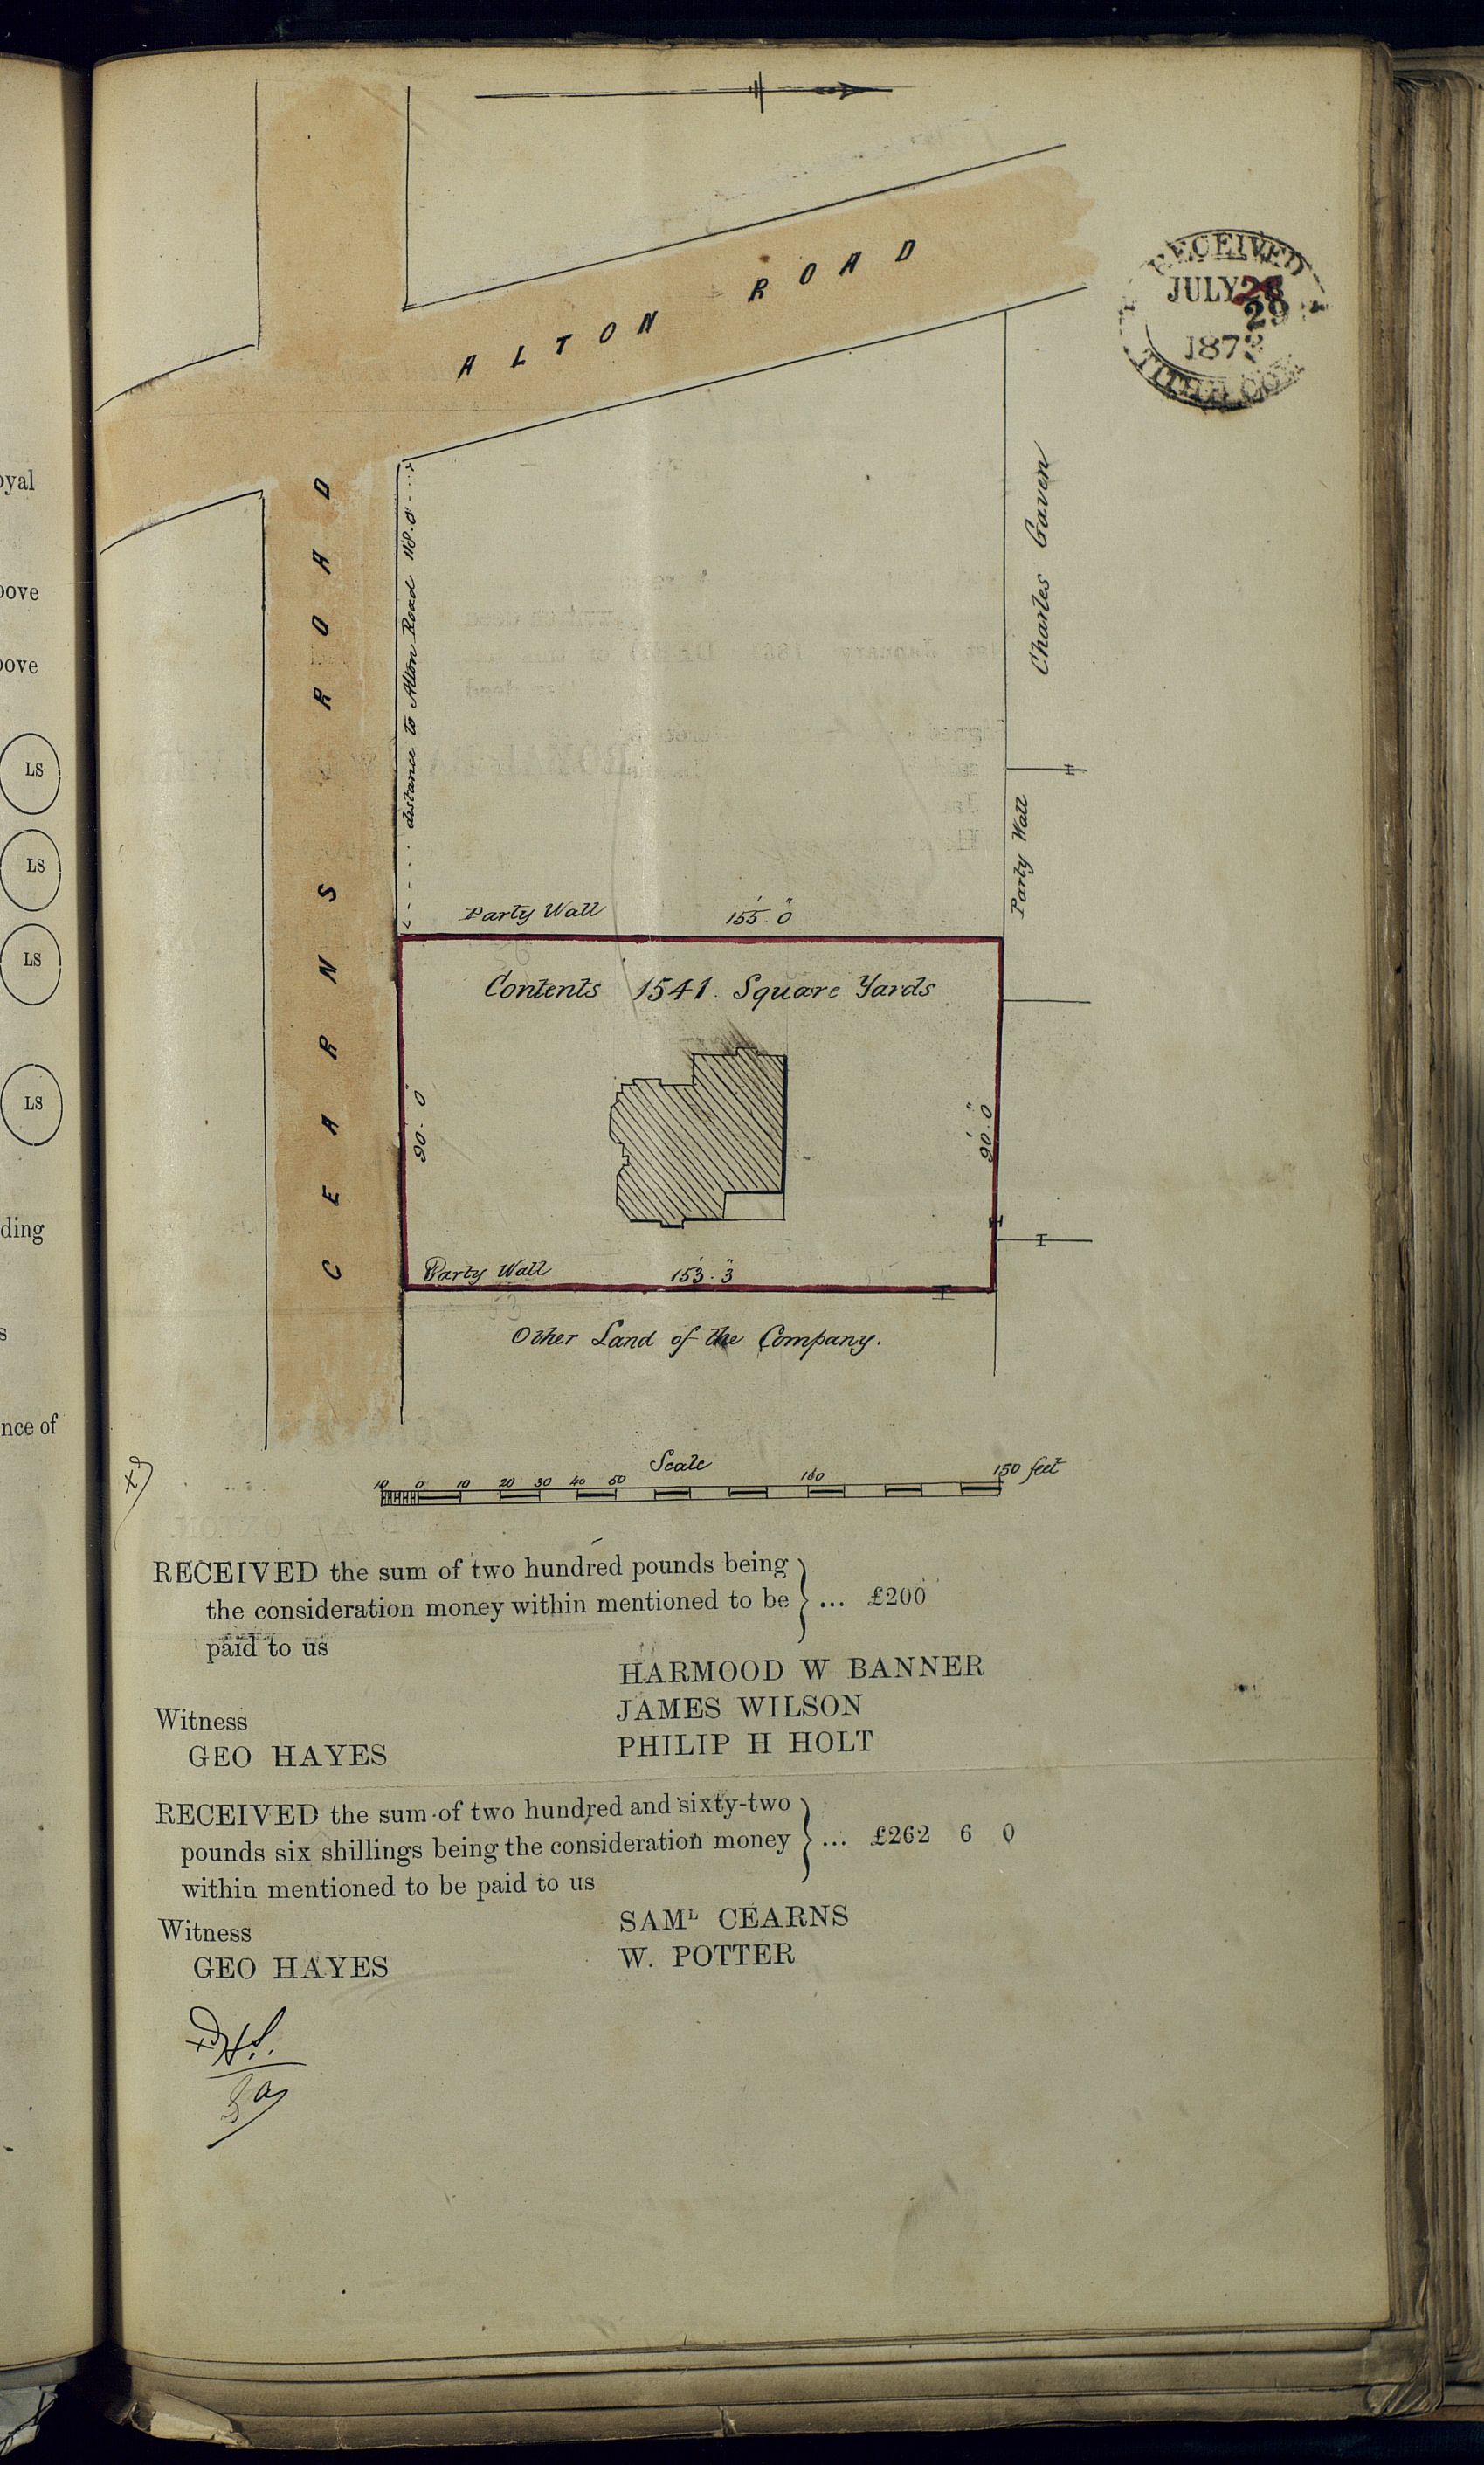 RECEIVED
JULY 28
29
187
TITHE COM
ALTON ROAD
CEARNS ROAD
distance to Alton Road 118.0
Charles Gaven
Party Wall
Party Wall 155'.0"
Contents 1541. Square Yards
90.0"
90'.0"
Party Wall 153'.3"
Other Land of the Company.
Scale
10 0 10 20 30 40 50 100 150 feet
RECEIVED the sum of two hundred pounds being
the consideration money within mentioned to be } ... £200
paid to us
HARMOOD W BANNER
JAMES WILSON
Witness
PHILIP H HOLT
GEO HAYES
RECEIVED the sum of two hundred and sixty-two
pounds six shillings being the consideration money } ... £262 6 0
within mentioned to be paid to us
SAMᴸ CEARNS
Witness
W. POTTER
GEO HAYES
oyal
ove
ove
LS
LS
LS
LS
ding
s
nce of